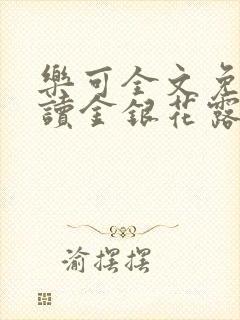 樂可全文免
讀金銀花露
渝摆摆